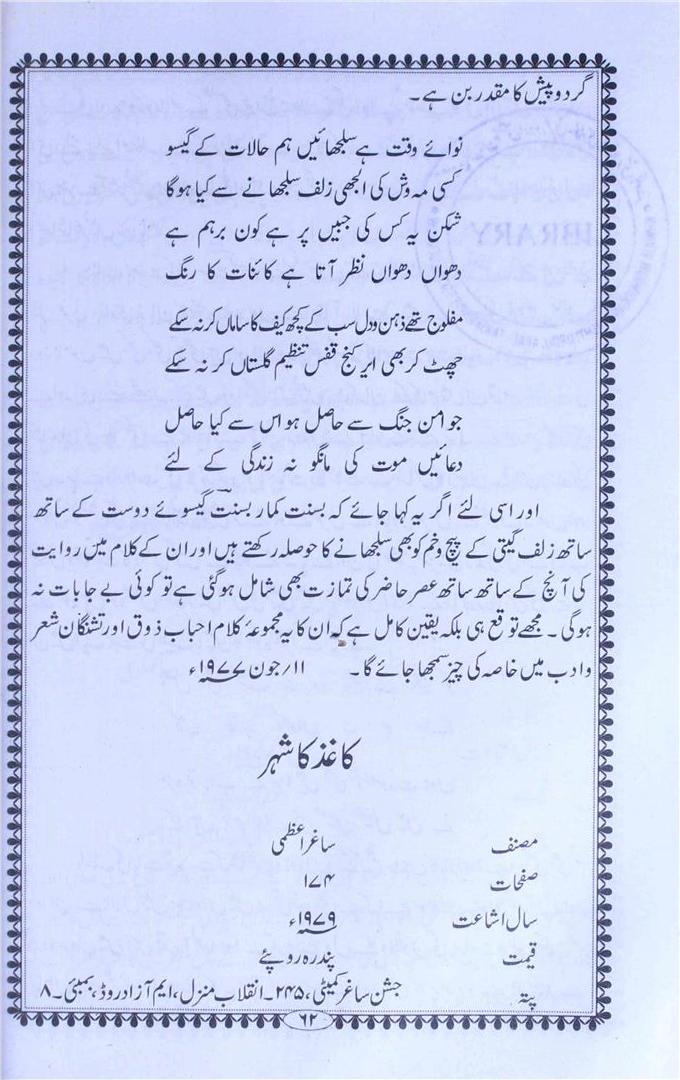 گردوپیش کا مقدر بن ہے۔
نوائے وقت ہے سلجھائیں ہم حالات کے گیسو
کسی مہ وش کی الجھی زلف سلجھانے سے کیا ہوگا
شکن یہ کس کی جبیں پر ہے کون برہم ہے
دھواں دھواں نظر آتا ہے کائنات کا رنگ
مفلوج تھے ذہن و دل سب کے کچھ کیف کا ساماں کر نہ سکے
چھٹ کر بھی اسیر کنج قفس تنظیم گلستاں کر نہ سکے
جو امن جنگ سے حاصل ہو اس سے کیا حاصل
دعائیں موت کی مانگو نہ زندگی کے لئے
اور اسی لئے اگر یہ کہا جائے کہ بسنت کمار بسنتؔ گیسوئے دوست کے ساتھ
ساتھ زلف گیتی کے پیچ و خم کو بھی سلجھانے کا حوصلہ رکھتے ہیں اور ان کے کلام میں روایت
کی آنچ کے ساتھ ساتھ عصر حاضر کی تمازت بھی شامل ہوگئی ہے تو کوئی بے جا بات نہ
ہوگی۔ مجھے توقع ہی بلکہ یقین کامل ہے کہ ان کا یہ مجموعۂ کلام احباب ذوق اور تشنگان شعر
و ادب میں خاصہ کی چیز سمجھا جائے گا۔ ۱۱/جون ۱۹۷۷ء
کاغذ کا شہر
مصنف ساغر اعظمی
صفحات ۱۷۴
سال اشاعت ۱۹۷۹ء
قیمت پندرہ روپئے
پتہ جشن ساغر کمیٹی، ۲۴۵۔ انقلاب منزل، ایم آزاد روڈ، بمبئی۔ ۸
۶۲